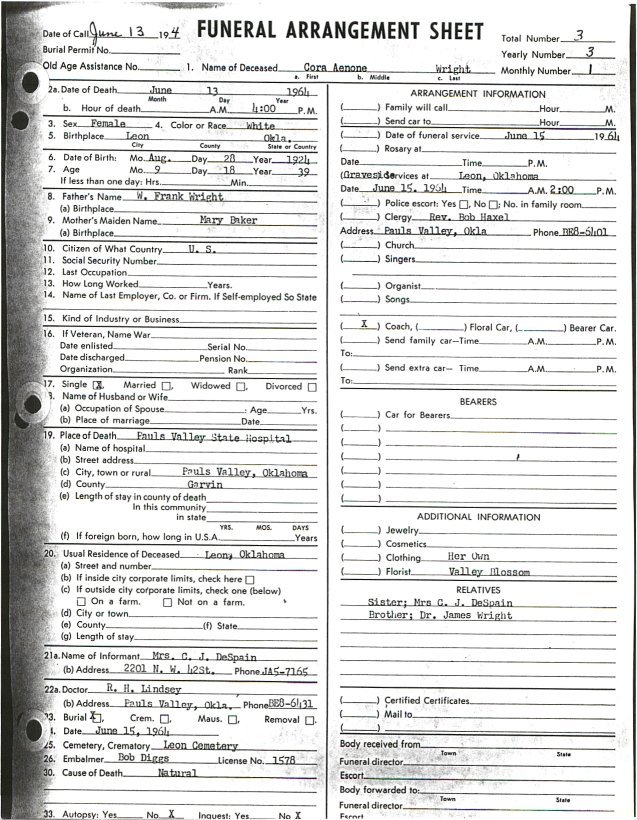 FUNERAL ARRANGEMENT SHEET
Date of Call June 13 194
Burial Permit No.
Old Age Assistance No.
Total Number 3
Yearly Number 3
Monthly Number 1
1. Name of Deceased Cora Aenone Wright
a. First b. Middle c. Last
2a. Date of Death June 13 1964
Month Day Year
b. Hour of death A.M. 4:00 P.M.
3. Sex Female 4. Color or Race White
5. Birthplace Leon Okla.
City County State or Country
6. Date of Birth: Mo. Aug. Day 28 Year 1924
7. Age Mo. 9 Day 18 Year 39
If less than one day: Hrs. Min.
8. Father's Name W. Frank Wright
(a) Birthplace
9. Mother's Maiden Name Mary Baker
(a) Birthplace
10. Citizen of What Country U. S.
11. Social Security Number
12. Last Occupation
13. How Long Worked Years.
14. Name of Last Employer, Co. or Firm. If Self-employed So State
15. Kind of Industry or Business
16. If Veteran, Name War
Date enlisted Serial No.
Date discharged Pension No.
Organization Rank
17. Single X, Married , Widowed , Divorced
8. Name of Husband or Wife
(a) Occupation of Spouse : Age Yrs.
(b) Place of marriage Date
19. Place of Death Pauls Valley State Hospital
(a) Name of hospital
(b) Street address
(c) City, town or rural Pauls Valley, Oklahoma
(d) County Garvin
(e) Length of stay in county of death
In this community
in state
YRS. MOS. DAYS
(f) If foreign born, how long in U.S.A. Years
20. Usual Residence of Deceased Leon, Oklahoma
(a) Street and number
(b) If inside city corporate limits, check here
(c) If outside city corporate limits, check one (below)
On a farm. Not on a farm.
(d) City or town
(e) County (f) State
(g) Length of stay
21a. Name of Informant Mrs. C. J. DeSpain
(b) Address 2201 N. W. 42St. Phone JA5-7165
22a. Doctor R. H. Lindsey
(b) Address Pauls Valley, Okla. Phone BE8-6431
23. Burial X, Crem. , Maus. , Removal
Date June 15, 1964
25. Cemetery, Crematory Leon Cemetery
26. Embalmer Bob Diggs License No. 1578
30. Cause of Death Natural
33. Autopsy: Yes No X Inquest: Yes No X
ARRANGEMENT INFORMATION
( ) Family will call Hour M.
( ) Send car to Hour M.
( ) Date of funeral service June 15 1964
( ) Rosary at
Date Time P.M.
(Graveside Services at Leon, Oklahoma
Date June 15. 1964 Time A.M. 2:00 P.M.
( ) Police escort: Yes , No ; No. in family room
( ) Clergy Rev. Bob Haxel
Address Pauls Valley, Okla Phone BE8-6401
( ) Church
( ) Singers
( ) Organist
( ) Songs
( X ) Coach, ( ) Floral Car, ( ) Bearer Car.
( ) Send family car—Time A.M. P.M.
To:
( ) Send extra car— Time A.M. P.M.
To:
BEARERS
( ) Car for Bearers
( )
( )
( )
( )
( )
( )
ADDITIONAL INFORMATION
( ) Jewelry
( ) Cosmetics
( ) Clothing Her Own
( ) Florist Valley Blossom
RELATIVES
Sister; Mrs C. J. DeSpain
Brother; Dr. James Wright
( ) Certified Certificates
( ) Mail to
( )
Body received from
Town State
Funeral director
Escort
Body forwarded to:
Town State
Funeral director
Escort